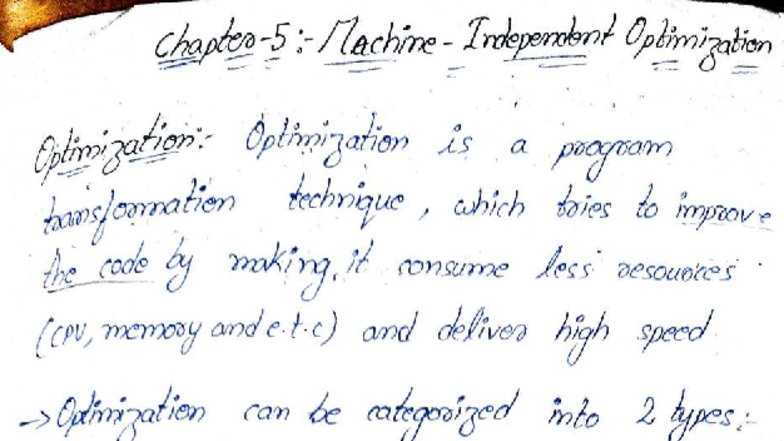 Chapter-5:- Machine - Independent Optimization
Optimization:- Optimization is a program
transformation technique, which tries to improve
the code by making, it consume less resources
(CPU, memory and e.t.c) and deliver high speed.
→ Optimization can be categorized into 2 types:-